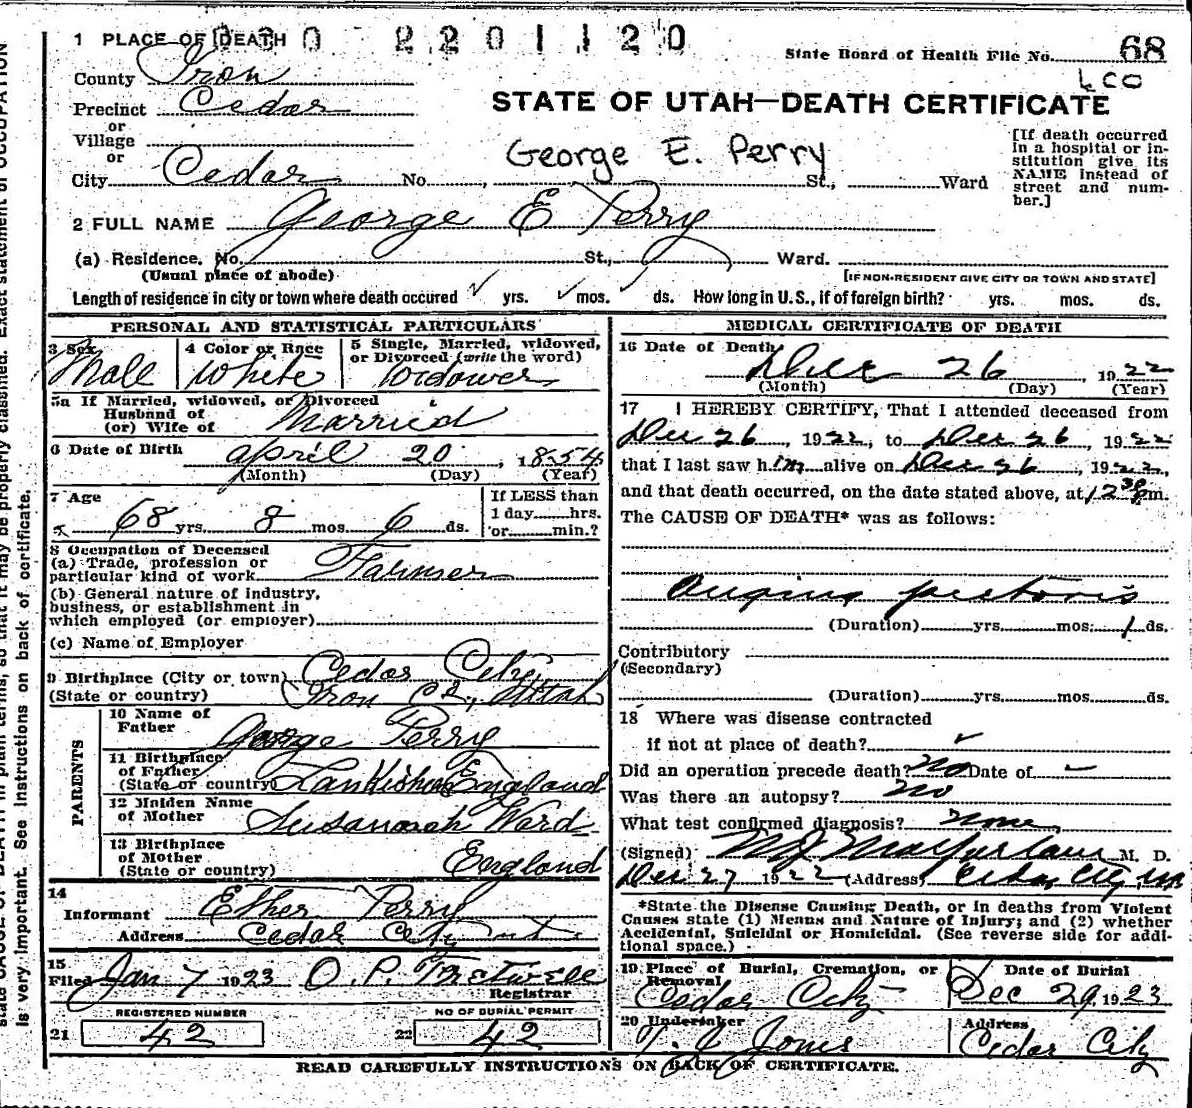 1 PLACE OF DEATH 2201120
State Board of Health File No. 68
LCO
County Iron
Precinct Cedar
STATE OF UTAH—DEATH CERTIFICATE
or
Village
or
City Cedar No. , George E. Perry St., Ward
[If death occurred
in a hospital or in-
stitution give its
NAME instead of
street and num-
ber.]
2 FULL NAME George E Perry
(a) Residence. No. St., Ward.
(Usual place of abode) [IF NON-RESIDENT GIVE CITY OR TOWN AND STATE]
Length of residence in city or town where death occured ✓ yrs. ✓ mos. ✓ ds. How long in U.S., if of foreign birth? yrs. mos. ds.
PERSONAL AND STATISTICAL PARTICULARS
3 Sex Male
4 Color or Race White
5 Single, Married, widowed,
or Divorced (write the word)
Widower
5a If Married, widowed, or Divorced
Husband of
(or) Wife of Married
6 Date of Birth april 20, 1854
(Month) (Day) (Year)
7 Age
68 yrs. 8 mos. 6 ds.
If LESS than
1 day hrs.
or min.?
8 Occupation of Deceased
(a) Trade, profession or
particular kind of work Farmer
(b) General nature of industry,
business, or establishment in
which employed (or employer)
(c) Name of Employer
9 Birthplace (City or town) Cedar City
(State or country) Iron Co., Utah
PARENTS
10 Name of
Father George Perry
11 Birthplace
of Father
(State or country) England
12 Maiden Name
of Mother Susannah Ward
13 Birthplace
of Mother
(State or country) England
14
Informant Ether Perry
Address Cedar City Ut
15
Filed Jan 7 1923 O. P.
Registrar
REGISTERED NUMBER
21 42
NO OF BURIAL PERMIT
22 42
MEDICAL CERTIFICATE OF DEATH
16 Date of Death Dec 26, 1922
(Month) (Day) (Year)
17 I HEREBY CERTIFY, That I attended deceased from
Dec 26, 1922, to Dec 26, 1922
that I last saw him alive on Dec 26, 1922,
and that death occurred, on the date stated above, at 12 30 pm.
The CAUSE OF DEATH* was as follows:
Angina pectoris
(Duration) yrs. mos. 1 ds.
Contributory
(Secondary)
(Duration) yrs. mos. ds.
18 Where was disease contracted
if not at place of death? ✓
Did an operation precede death? no Date of –
Was there an autopsy? no
What test confirmed diagnosis? none
(Signed) M J Macfarlane M. D.
Dec 27 1922 (Address) Cedar City, Ut
*State the Disease Causing Death, or in deaths from Violent
Causes state (1) Means and Nature of Injury; and (2) whether
Accidental, Suicidal or Homicidal. (See reverse side for addi-
tional space.)
19 Place of Burial, Cremation, or
Removal
Cedar City
Date of Burial
Dec 29, 1923
20 Undertaker
T. J. Jones
Address
Cedar City
READ CAREFULLY INSTRUCTIONS ON BACK OF CERTIFICATE.
state CAUSE OF DEATH in plain terms, so that it may be properly classified. Exact statement of OCCUPATION
is very important. See instructions on back of certificate.